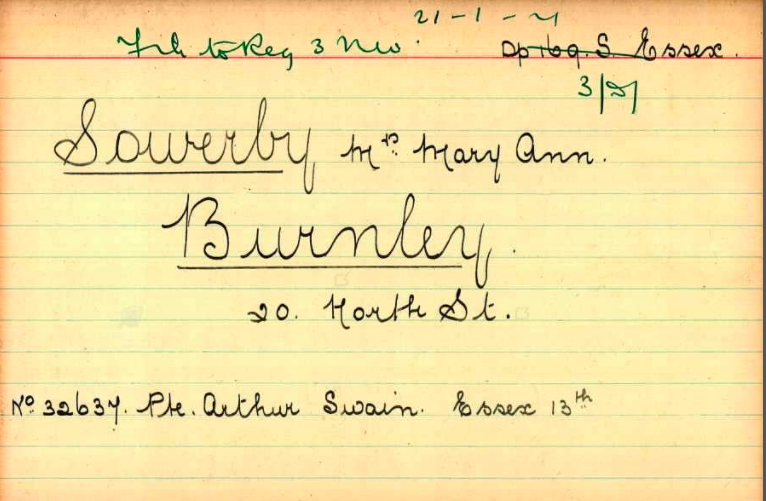 21-1-21
to Reg 3 Nw. Sp 169. S. Essex.
3/21
Sowerby Mrs Mary Ann.
Burnley.
20. North St.
No 32637. Pte. Arthur Swain. Essex 13th